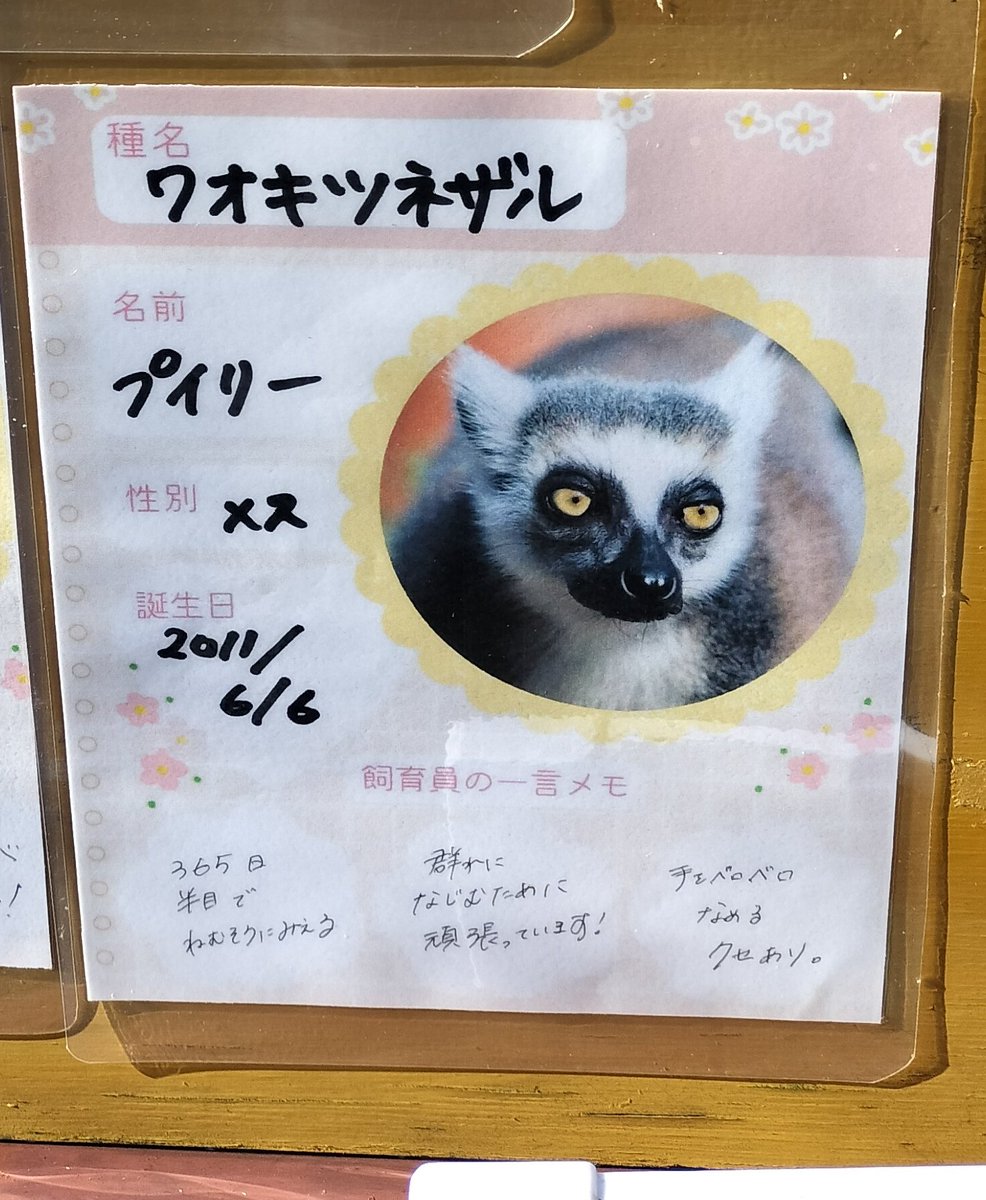 種名
ワオキツネザル
名前
プイリー
性別
メス
誕生日
2011/
6/6
飼育員の一言メモ
365日
半目で
ねむそうにみえる
群れに
なじむために
頑張っています!
手をベロベロ
なめる
クセあり。